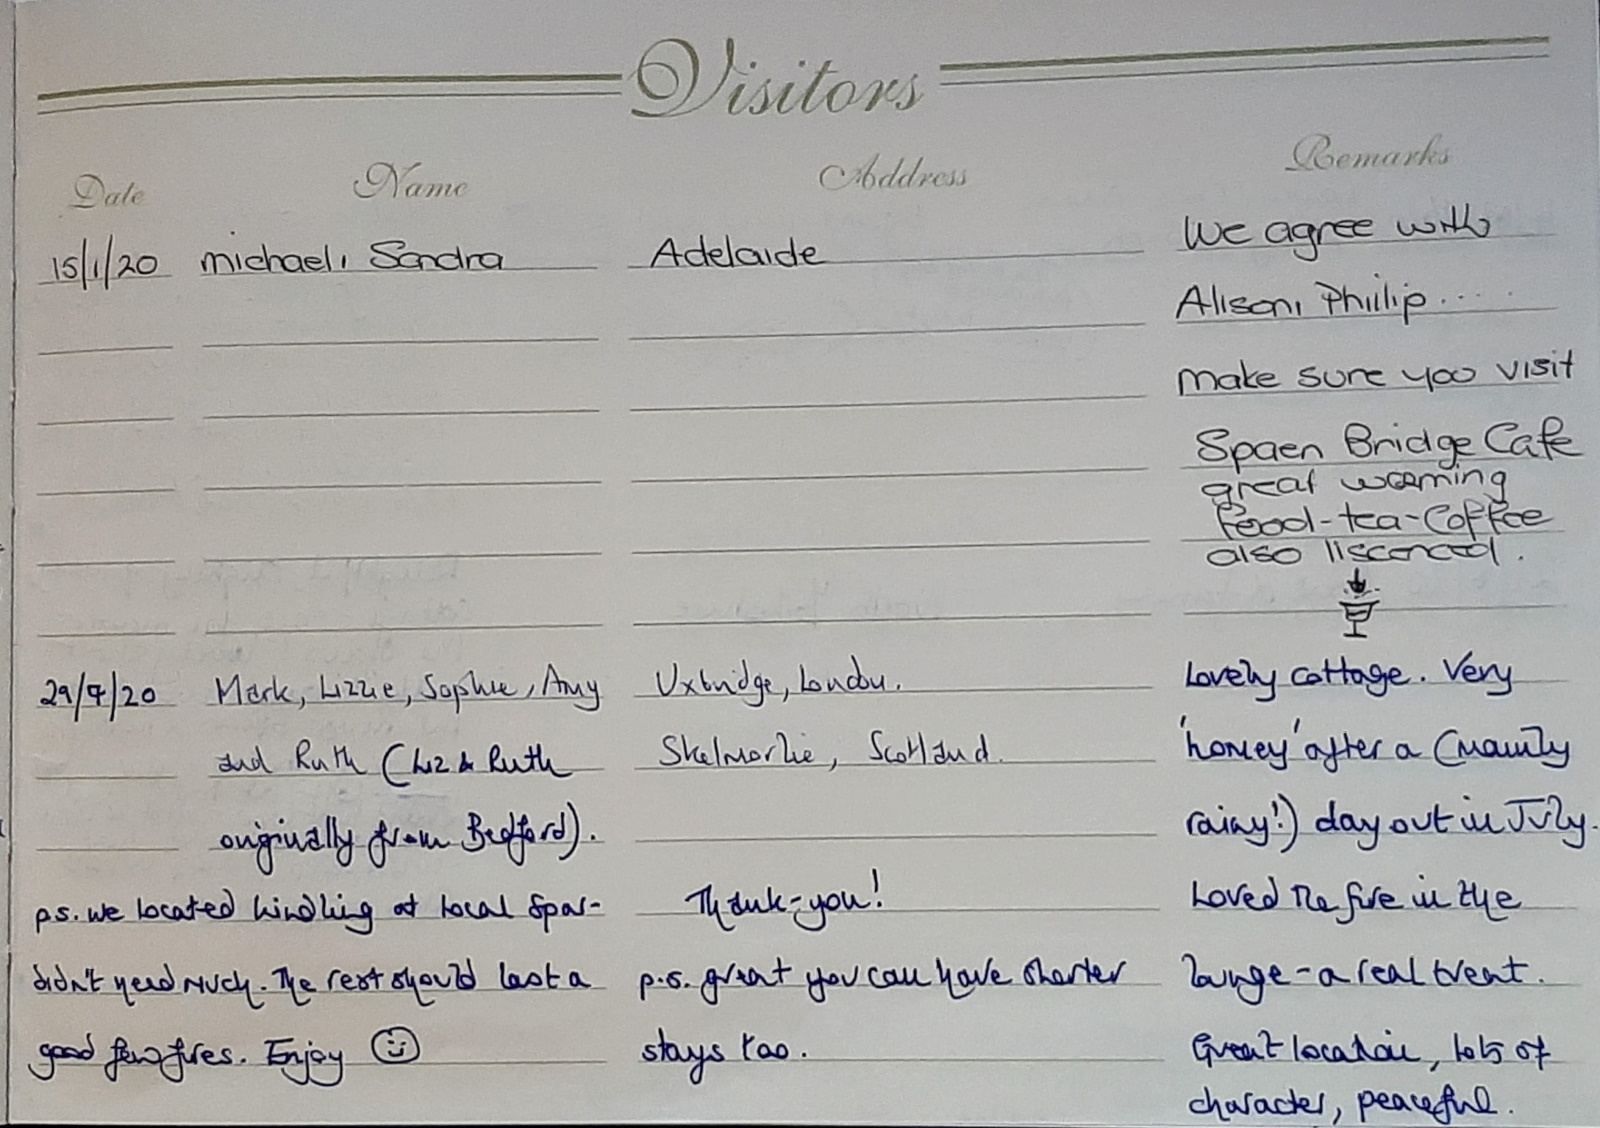 Visitors
Date Name Address Remarks
15/1/20 michael, Sandra Adelaide We agree with
Alison, Phillip.....
make sure you visit
Spaen Bridge Cafe
great warming
food-tea-coffee
also liscenced.
29/7/20 Mark, Lizzie, Sophie, Amy Uxbridge, London. Lovely cottage. Very
and Ruth (Liz & Ruth Skelmorlie, Scotland. 'homey' after a (mainly
originally from Bedford). rainy!) day out in July.
p.s. we located kindling at local Spar- Thank-you! Loved the fire in the
didn't need much. The rest should last a p.s. great you can have shorter lounge - a real treat.
good few fires. Enjoy ☺ stays too. Great location, lots of
character, peaceful.